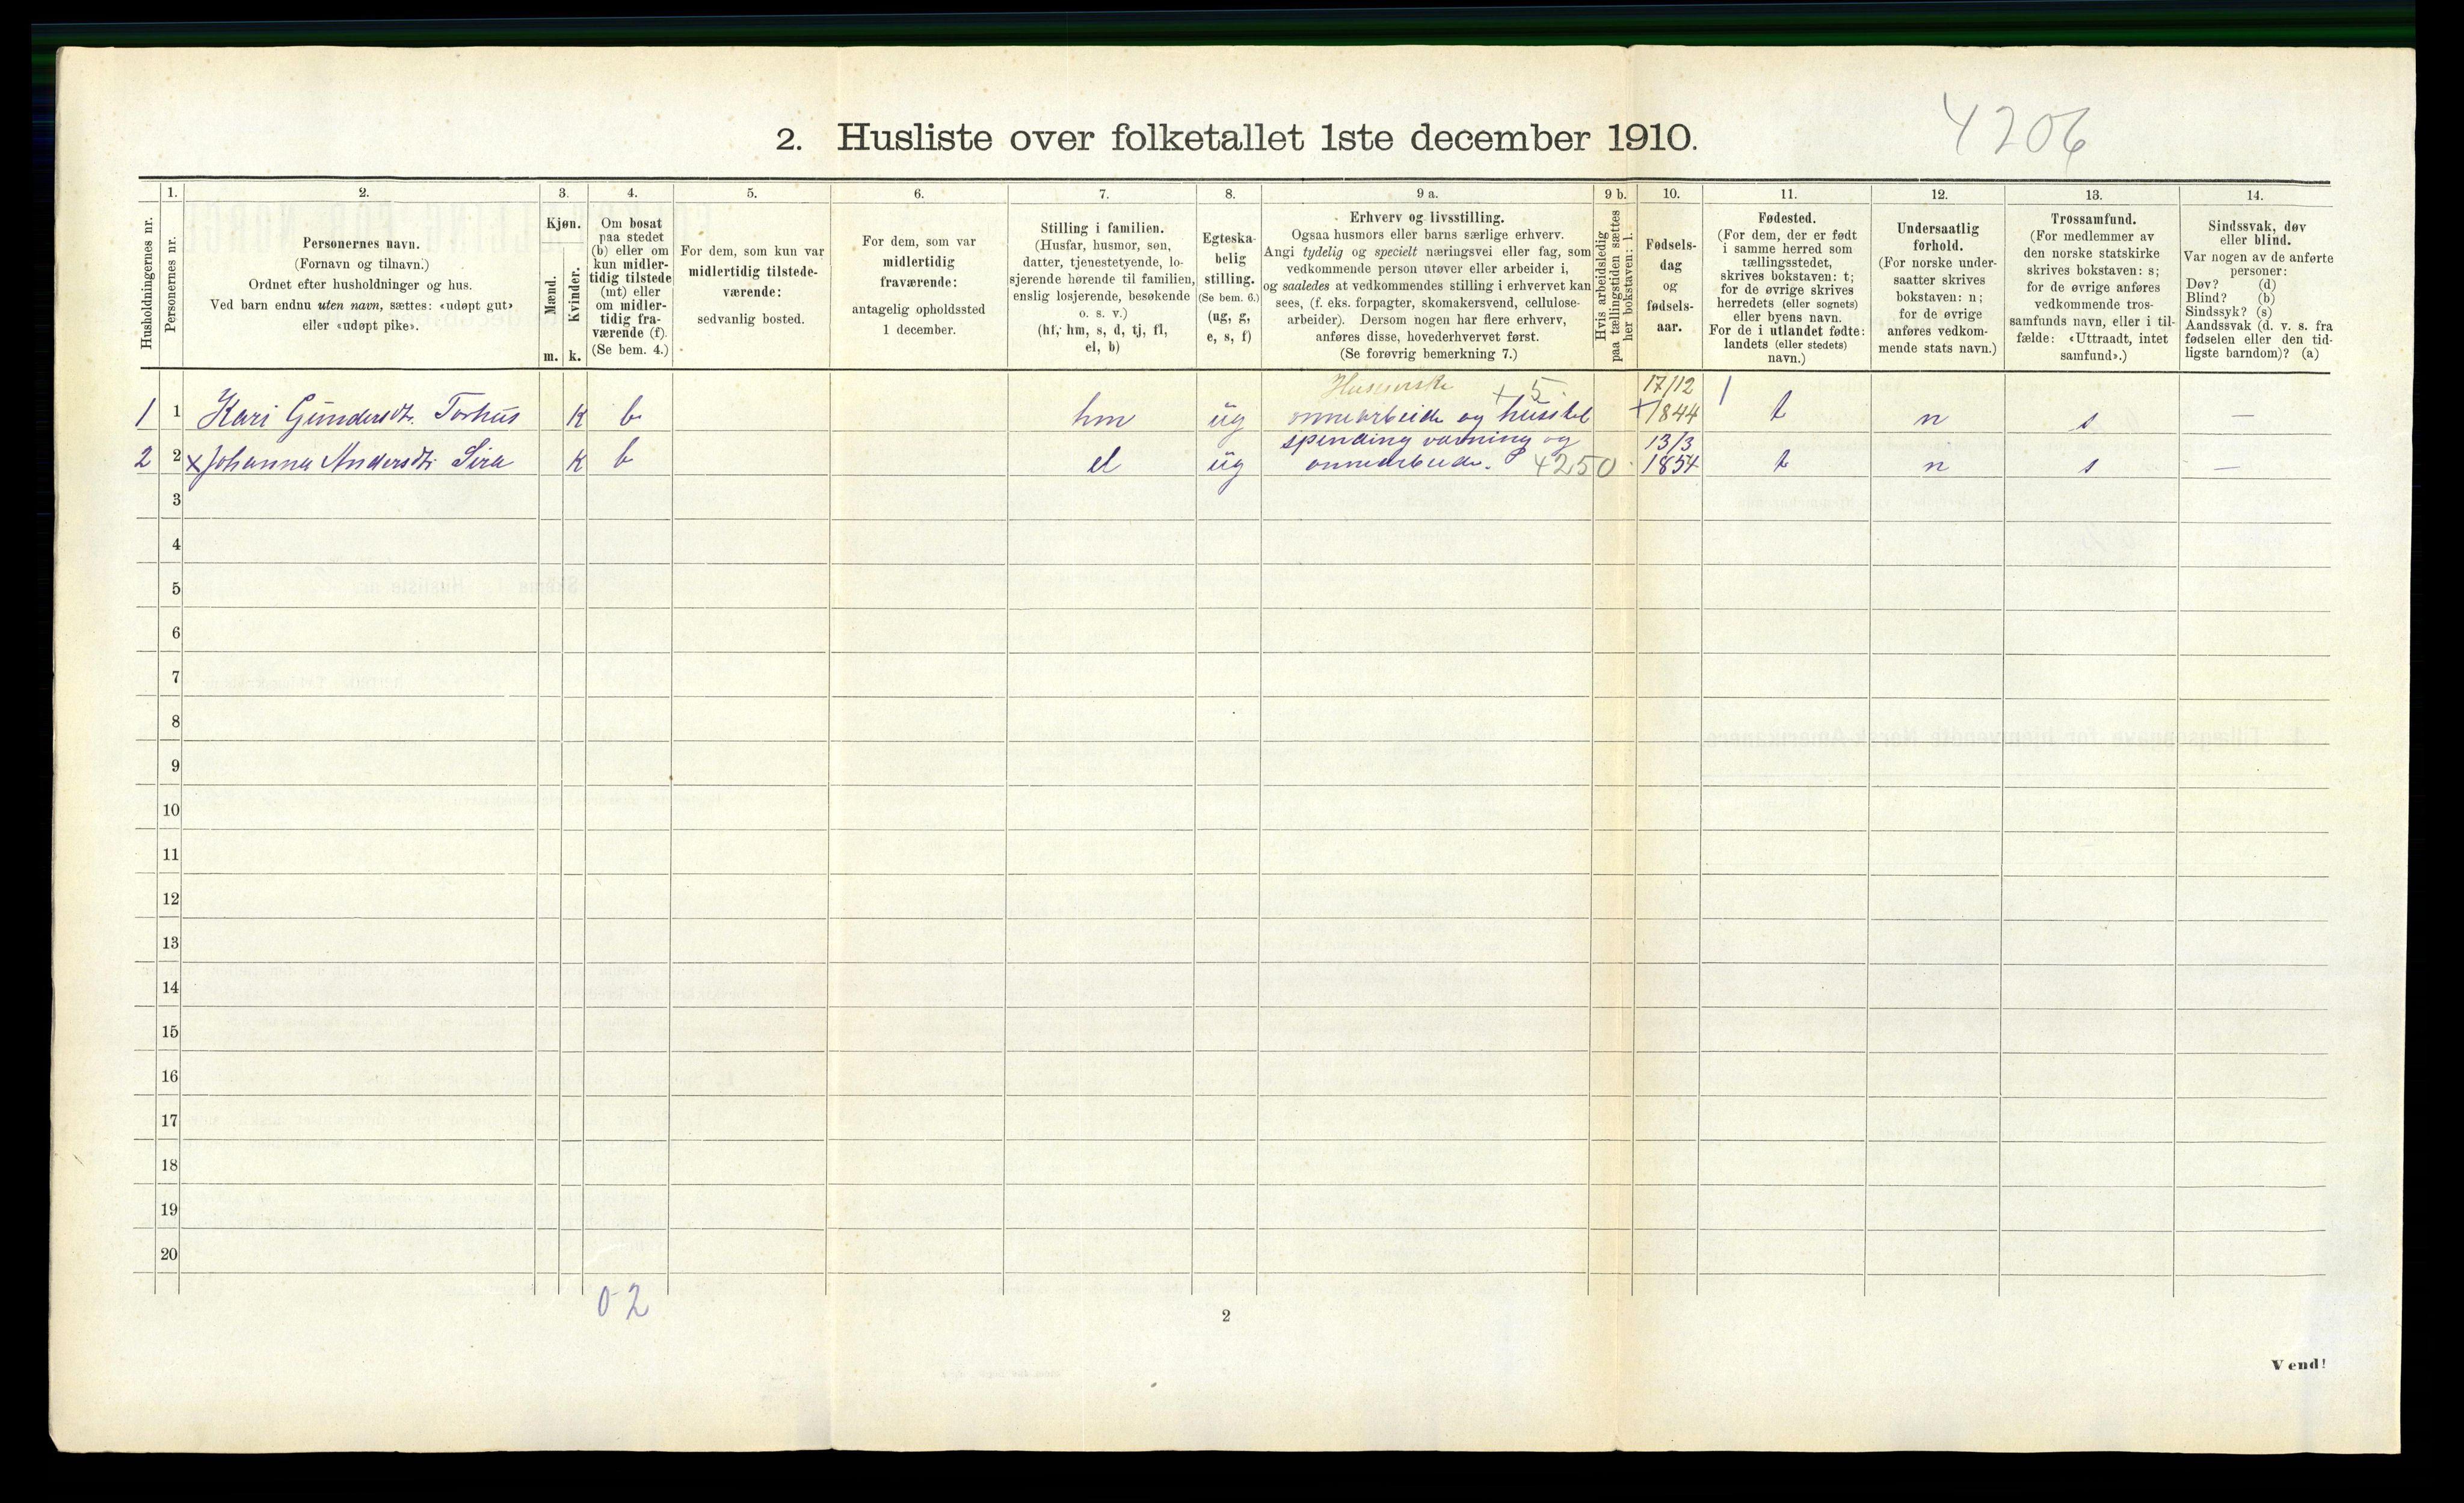 4206
2. Husliste over folketallet 1ste december 1910.
Husholdningernes nr.
1.
Personernes nr.
2.
Personernes navn.
(Fornavn og tilnavn.)
Ordnet efter husholdninger og hus.
Ved barn endnu uten navn, sættes: «udøpt gut»
eller «udøpt pike».
3.
Kjøn.
Mænd.
m.
Kvinder.
k.
4.
Om bosat
paa stedet
(b) eller om
kun midler-
tidig tilstede
(mt) eller
om midler-
tidig fra-
værende (f).
(Se bem. 4.)
5.
For dem, som kun var
midlertidig tilstede-
værende:
sedvanlig bosted.
6.
For dem, som var
midlertidig
fraværende:
antagelig opholdssted
1 december.
7.
Stilling i familien.
(Husfar, husmor, søn,
datter, tjenestetyende, lo-
sjerende hørende til familien,
enslig losjerende, besøkende
o. s. v.)
(hf, hm, s, d, tj, fl,
el, b)
8.
Egteska-
belig
stilling.
(Se bem. 6.)
(ug, g,
e, s, f)
9 a.
Erhverv og livsstilling.
Ogsaa husmors eller barns særlige erhverv.
Angi tydelig og specielt næringsvei eller fag, som
vedkommende person utøver eller arbeider i,
og saaledes at vedkommendes stilling i erhvervet kan
sees, (f. eks. forpagter, skomakersvend, cellulose-
arbeider). Dersom nogen har flere erhverv,
anføres disse, hovederhvervet først.
(Se forøvrig bemerkning 7.)
9 b.
Hvis arbeidsledig
paa tællingstiden sættes
her bokstaven: l.
10.
Fødsels-
dag
og
fødsels-
aar.
11.
Fødested.
(For dem, der er født
i samme herred som
tællingsstedet,
skrives bokstaven: t;
for de øvrige skrives
herredets (eller sognets)
eller byens navn.
For de i utlandet fødte:
landets (eller stedets)
navn.)
12.
Undersaatlig
forhold.
(For norske under-
saatter skrives
bokstaven: n;
for de øvrige
anføres vedkom-
mende stats navn.)
13.
Trossamfund.
(For medlemmer av
den norske statskirke
skrives bokstaven: s;
for de øvrige anføres
vedkommende tros-
samfunds navn, eller i til-
fælde: «Uttraadt, intet
samfund».)
14.
Sindssvak, døv
eller blind.
Var nogen av de anførte
personer:
Døv? (d)
Blind? (b)
Sindssyk? (s)
Aandssvak (d. v. s. fra
fødselen eller den tid-
ligste barndom)? (a)
+ 5. 17/12
1 1 Kari Gundersdtr. Torhus K b hm ug onnearbeide og husstel +1844 1 t n s —
spinding vævning og 13/3
2 2 x Johanna Andersdtr. Sira K b el ug onnearbeide. 4250 1854 t n s —
3
4
5
6
7
8
9
10
11
12
13
14
15
16
17
18
19
20
0 2
2
Vend!